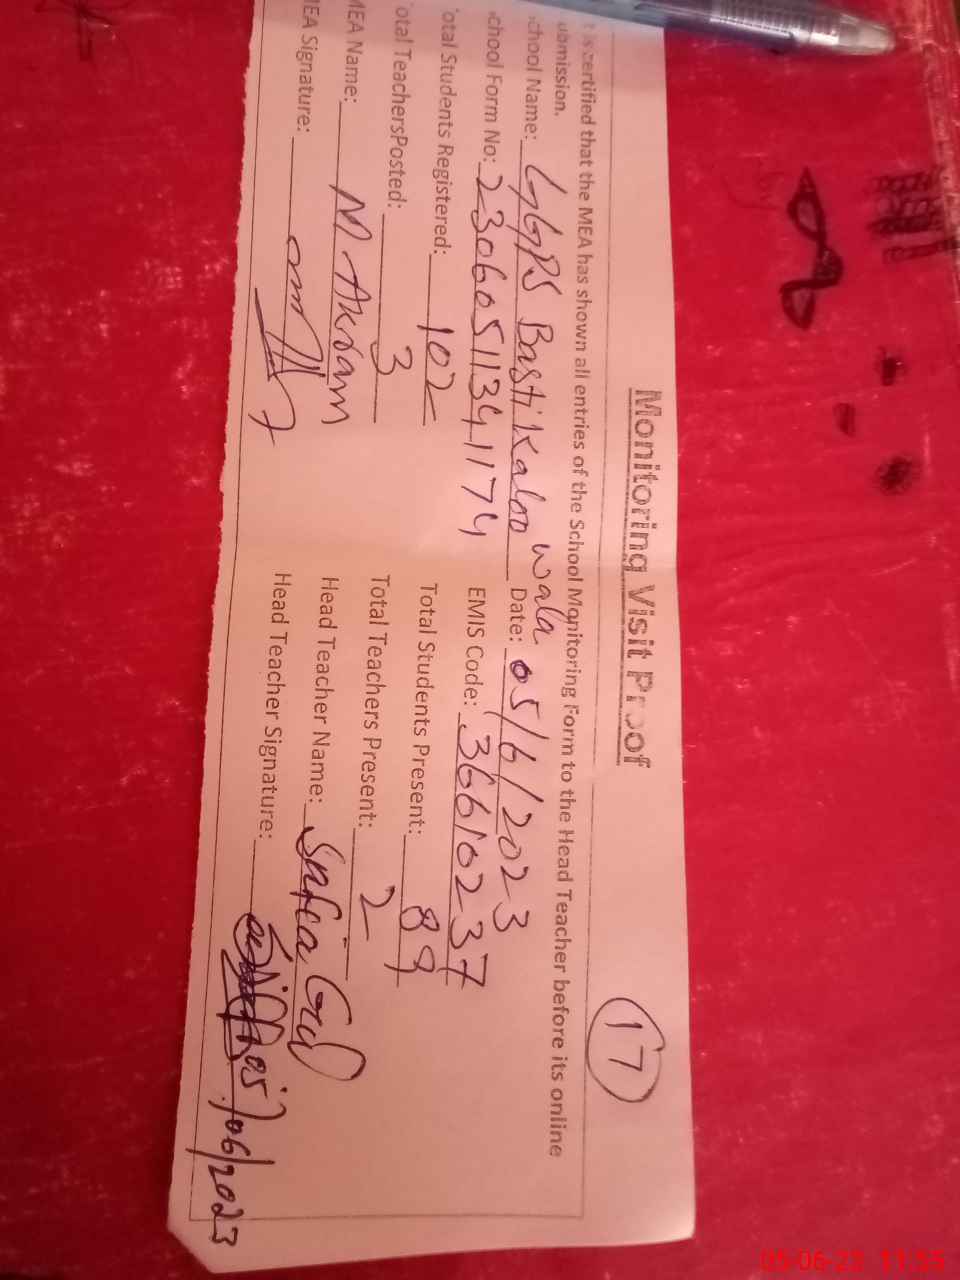 17
Monitoring Visit Proof
t is certified that the MEA has shown all entries of the School Monitoring Form to the Head Teacher before its online
ubmission.
chool Name: GGPS Basti Kaloo wala Date: 05/6/2023
chool Form No: 23060511341174 EMIS Code: 36610237
otal Students Registered: 102 Total Students Present: 89
otal TeachersPosted: 3 Total Teachers Present: 2
MEA Name: M Akram Head Teacher Name: Safia Gul
IEA Signature: Head Teacher Signature: 05/06/2023
05-06-23 11:53